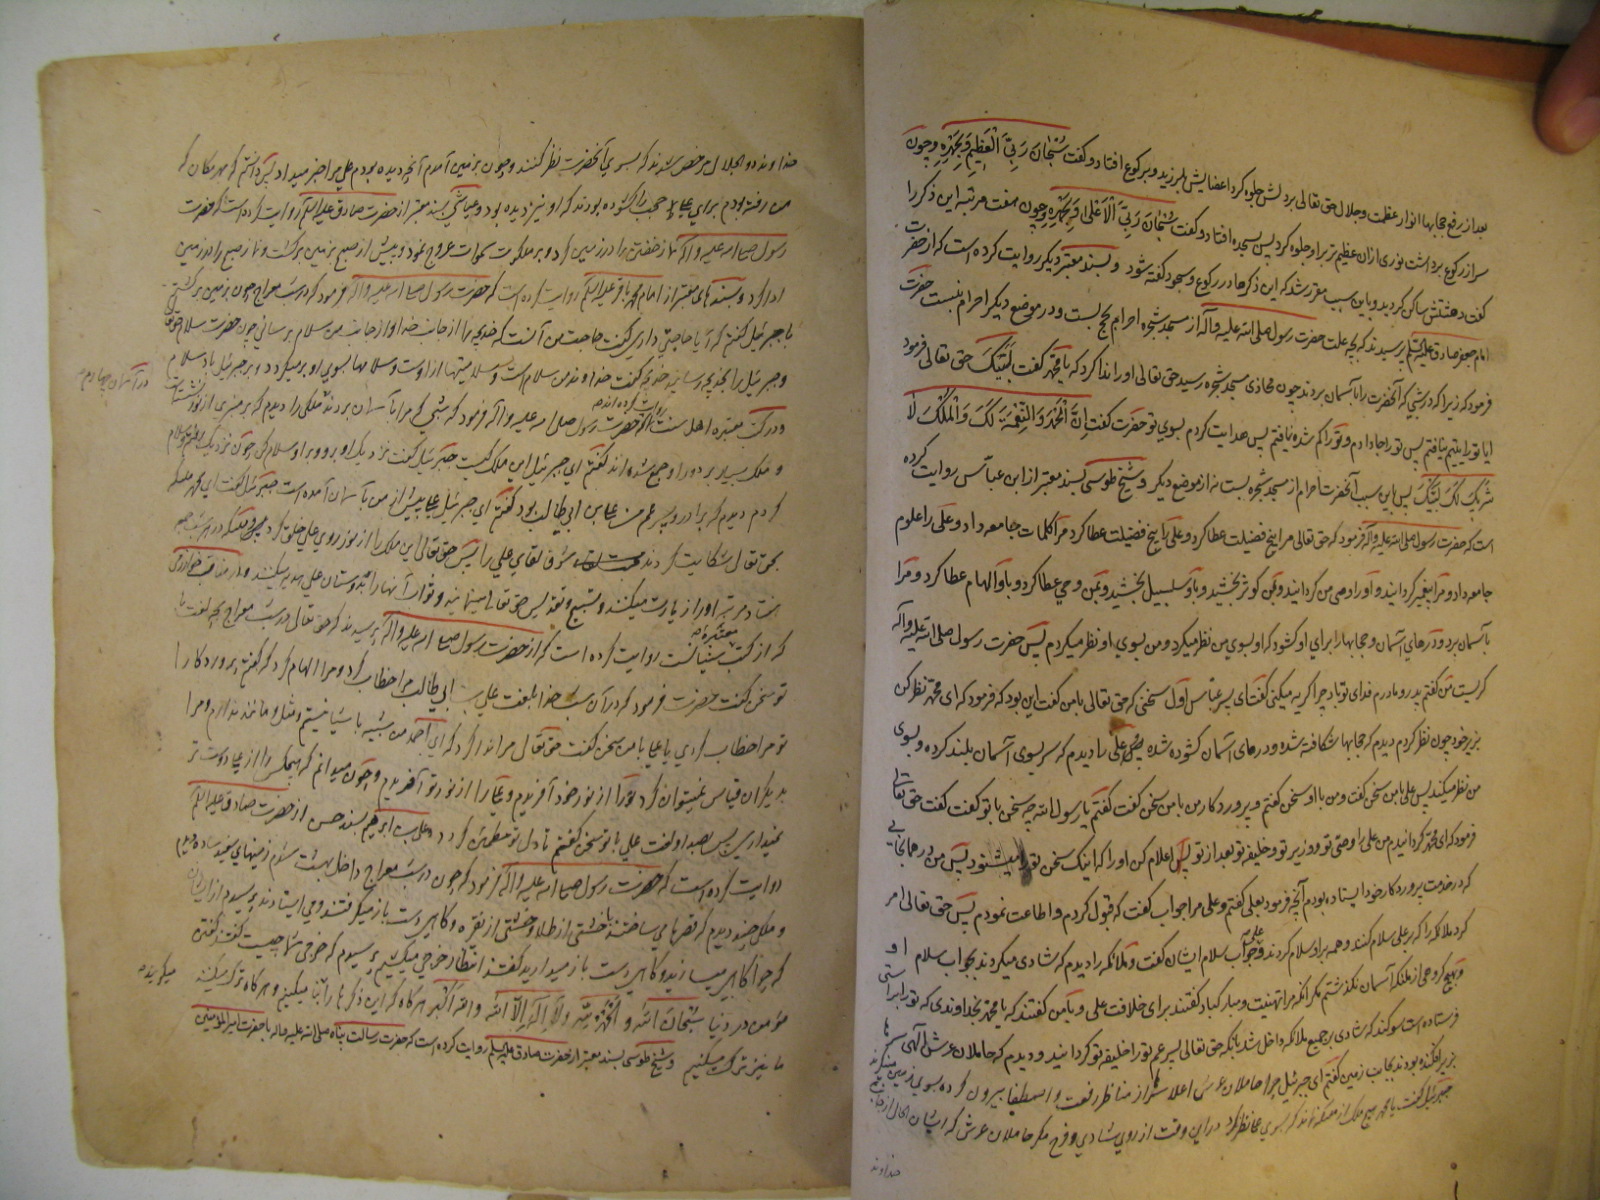 بعد از رفع حجابها انوار عظمت و جلال حق تعالی بر دلش جلوه کرد اعضایش بلرزید و برکوع افتاد و گفت سُبْحَانَ رَبِّیَ الْعَظِیمِ وَبِحَمْدِهِ و چون
سر از رکوع برداشت نوری از ان عظیم تر بر او جلوه کرد پس بسجده افتاد و گفت سُبْحَانَ رَبِّیَ الْاَعْلیٰ وَبِحَمْدِهِ و چون هفت مرتبه این ذکر را
گفت دهشتش ساکن گردید و باین سبب مقرر شد که این ذکرها در رکوع و سجود گفته شود و بسند معتبر دیگر روایت کرده است که از حضرت
امام جعفر صادق علیه السلم پرسیدند که بچه علت حضرت رسول صلی الله علیه و آله از مسجد شجره احرام بحج بست و در موضع دیگر احرام نبست حضرت
فرمود که زیرا که در شبی که آنحضرت را بآسمان بردند چون محاذی مسجد شجره رسید حق تعالی او را ندا کرد که یا محمد گفت لَبَّیْکَ حق تعالی فرمود
ایا تو را یتیم نیافتم پس تو را جا دادم و تو را گم شده یافتم پس هدایت کردم بسوی تو حضرت گفت اِنَّ الْحَمْدَ وَالنِّعْمَةَ لَکَ وَالْمُلْکَ لَا
شَرِیکَ لَکَ لَبَّیْکَ پس باین سبب آنحضرت احرام از مسجد شجره بست نه از موضع دیگر و شیخ طوسی بسند معتبر از ابن عباس روایت کرده
است که حضرت رسول صلی الله علیه و آله فرمود که حق تعالی مرا پنج فضیلت عطا کرد و علی را پنج فضیلت عطا کرد مرا کلمات جامعه داد و علی را علوم
جامعه داد و مرا پیغمبر گردانید و او را وصی من گردانید و بمن کوثر بخشید و باو سلسبیل بخشید و بمن وحی عطا کرد و باو الهام عطا کرد و مرا
بآسمان برد و درهای آسمان و حجابها را برای او گشود که او بسوی من نظر میکرد و من بسوی او نظر میکردم پس حضرت رسول صلی الله علیه و آله
گریست من گفتم پدر و مادرم فدای تو باد چرا گریه میکنی گفت ای پسر عباس اول سخنی که حق تعالی با من گفت این بود که فرمود که ای محمد نظر کن
بزیر خود چون نظر کردم دیدم که حجابها شکافته شده و درهای آسمان گشوده شده علی را دیدم که سر بسوی آسمان بلند کرده و بسوی
من نظر میکند پس علی با من سخن گفت و من با او سخن گفتم و پروردگار من با من سخن گفت گفتم یا رسول الله چه سخن با تو گفت گفت حق تعالی
فرمود که ای محمد گردانیدم من علی را وصی تو و وزیر تو و خلیفه تو بعد از تو پس اعلام کن او را که اینک سخن تو را میشنود پس من در همانجایی
که در خدمت پروردگار خود ایستاده بودم آنچه فرمود بعلی گفتم و علی مرا جواب گفت که قبول کردم و اطاعت نمودم پس حق تعالی امر
کرد ملائکه را که بر علی سلام کنند و همه بر او سلام کردند و علی جواب سلام ایشان گفت و ملائکه را دیدم که شادی میکردند بجواب سلام او
و بهیچ گروهی از ملائکه آسمان نگذشتم مگر آنکه مرا تهنیت و مبارکباد گفتند برای خلافت علی و با من گفتند که یا محمد بخداوندی که تو را براستی
فرستاده است سوگند که شادی بر جمیع ملائکه داخل شد بانکه حق تعالی پسر عم تو را خلیفه تو گردانید و دیدم که حاملان عرش الهی سرها
بزیر افکنده بودند بجانب زمین گفتم ای جبرئیل چرا حاملان عرش اعلا سرها از مناظر رفعت و اصطفا بیرون کرده بسوی زمین
جبرئیل گفت یا محمد هیچ ملک از ملائکه نماند مگر بسوی علی نظر کرد در این وقت از روی شادی و فرح مگر حاملان عرش که ایشان الحال از جانب
خداوند
خداوند ذو الجلال مرخص شدند که بسوی آنحضرت نظر کنند و چون بزمین آمدم آنچه دیده بودم علی مرا خبر میداد پس دانستم که بهر مکان که
من رفته بودم برای علی حجب را گشوده بودند که او نیز دیده بود و عیاشی بسند معتبر از حضرت صادق علیه السلم روایت کرده است که حضرت
رسول صلی الله علیه و آله نماز خفتن را در زمین کرد و بر ملکوت سموات عروج نمود و پیش از صبح بزمین برگشت و نماز صبح را در زمین
ادا کرد و بسندهای معتبر از امام محمد باقر علیه السلم روایت کرده است که حضرت رسول صلی الله علیه و آله فرمود که در شب معراج چون بزمین برگشتم
با جبرئیل گفتم که آیا حاجتی داری گفت حاجت من آنست که خدیجه را از جانب خدا و از جانب من سلام برسانی چون حضرت سلام حق تعالی
و جبرئیل را بخدیجه رسانید خدیجه گفت خداوند من سلام است و سلامتیها از اوست و سلامها بسوی او برمیگردد و بر جبرئیل باد سلام
در آسمان چهارم
و در کتب معتبره اهل سنت روایت کرده اند که حضرت رسول صلی الله علیه و آله فرمود که شبی که مرا بآسمان بردند ملکی را دیدم که بر منبری از نور نشسته است
و ملک بسیار بر دور او جمع شده اند گفتم ای جبرئیل این ملک کیست جبرئیل گفت نزدیک او برو و بر او سلام کن چون نزدیک رفتم و سلام
کردم دیدم که برادر و پسر عم من علی بن ابی طالب بود گفتم ای جبرئیل علی پیش از من بآسمان آمده است جبرئیل گفت ای محمد ملائکه
بحق تعالی شکایت کردند شوق لقای علی را پس حق تعالی این ملک را از نور روی علی خلق کرد
هفتاد مرتبه او را زیارت میکنند و تسبیح و تقدیس حق تعالی مینمایند و ثواب آنها را بدوستان علی هدیه میکنند و در مناقب خوارزمی
که از کتب معتبره سنیانست روایت کرده است که از حضرت رسول صلی الله علیه و آله پرسیدند که حق تعالی در شب معراج بچه لغت با
تو سخن گفت حضرت فرمود که در آن شب خدا بلغت علی بن ابی طالب مرا خطاب کرد و مرا الهام کرد که گفتم پروردگارا
تو مرا خطاب کردی یا علی با من سخن گفت حق تعالی مرا ندا کرد که ای احمد من شبیه باشیا نیستم و مثل و مانند ندارم و مرا
بدیگران قیاس نمیتوان کرد تو را از نور خود آفریدم و علی را از نور تو آفریدم و چون میدانم که هیچکس را از علی دوست تر
نمیداری پس بصدا و لغت علی با تو سخن گفتم تا دل تو مطمئن گردد و علی بن ابراهیم بسند حسن از حضرت صادق علیه السلم
روایت کرده است که حضرت رسول صلی الله علیه و آله فرمود که چون در شب معراج داخل بهشت شدم زمینهای سفید ساده دیدم
و ملکی چند دیدم که قصرها می ساختند خشتی از طلا و خشتی از نقره و گاهی دست باز میگرفتند و می ایستادند پرسیدم از ایشان
که چرا گاهی میسازید و گاهی دست باز میدارید گفتند انتظار خرجی میکشیم پرسیدم که خرجی شما چیست گفتند گفتن
مؤمن در دنیا سُبْحَانَ اللّٰه وَالْحَمْدُ لِلّٰه وَلَا اِلٰهَ اِلَّا اللّٰه وَاللّٰه اَکْبَر هرگاه که این ذکرها را میگوید بنا میکنیم و هرگاه ترک میکند
ما نیز ترک میکنیم و شیخ طوسی بسند معتبر از حضرت صادق علیه السلم روایت کرده است که حضرت رسالت پناه صلی الله علیه و آله با حضرت امیر المؤمنین